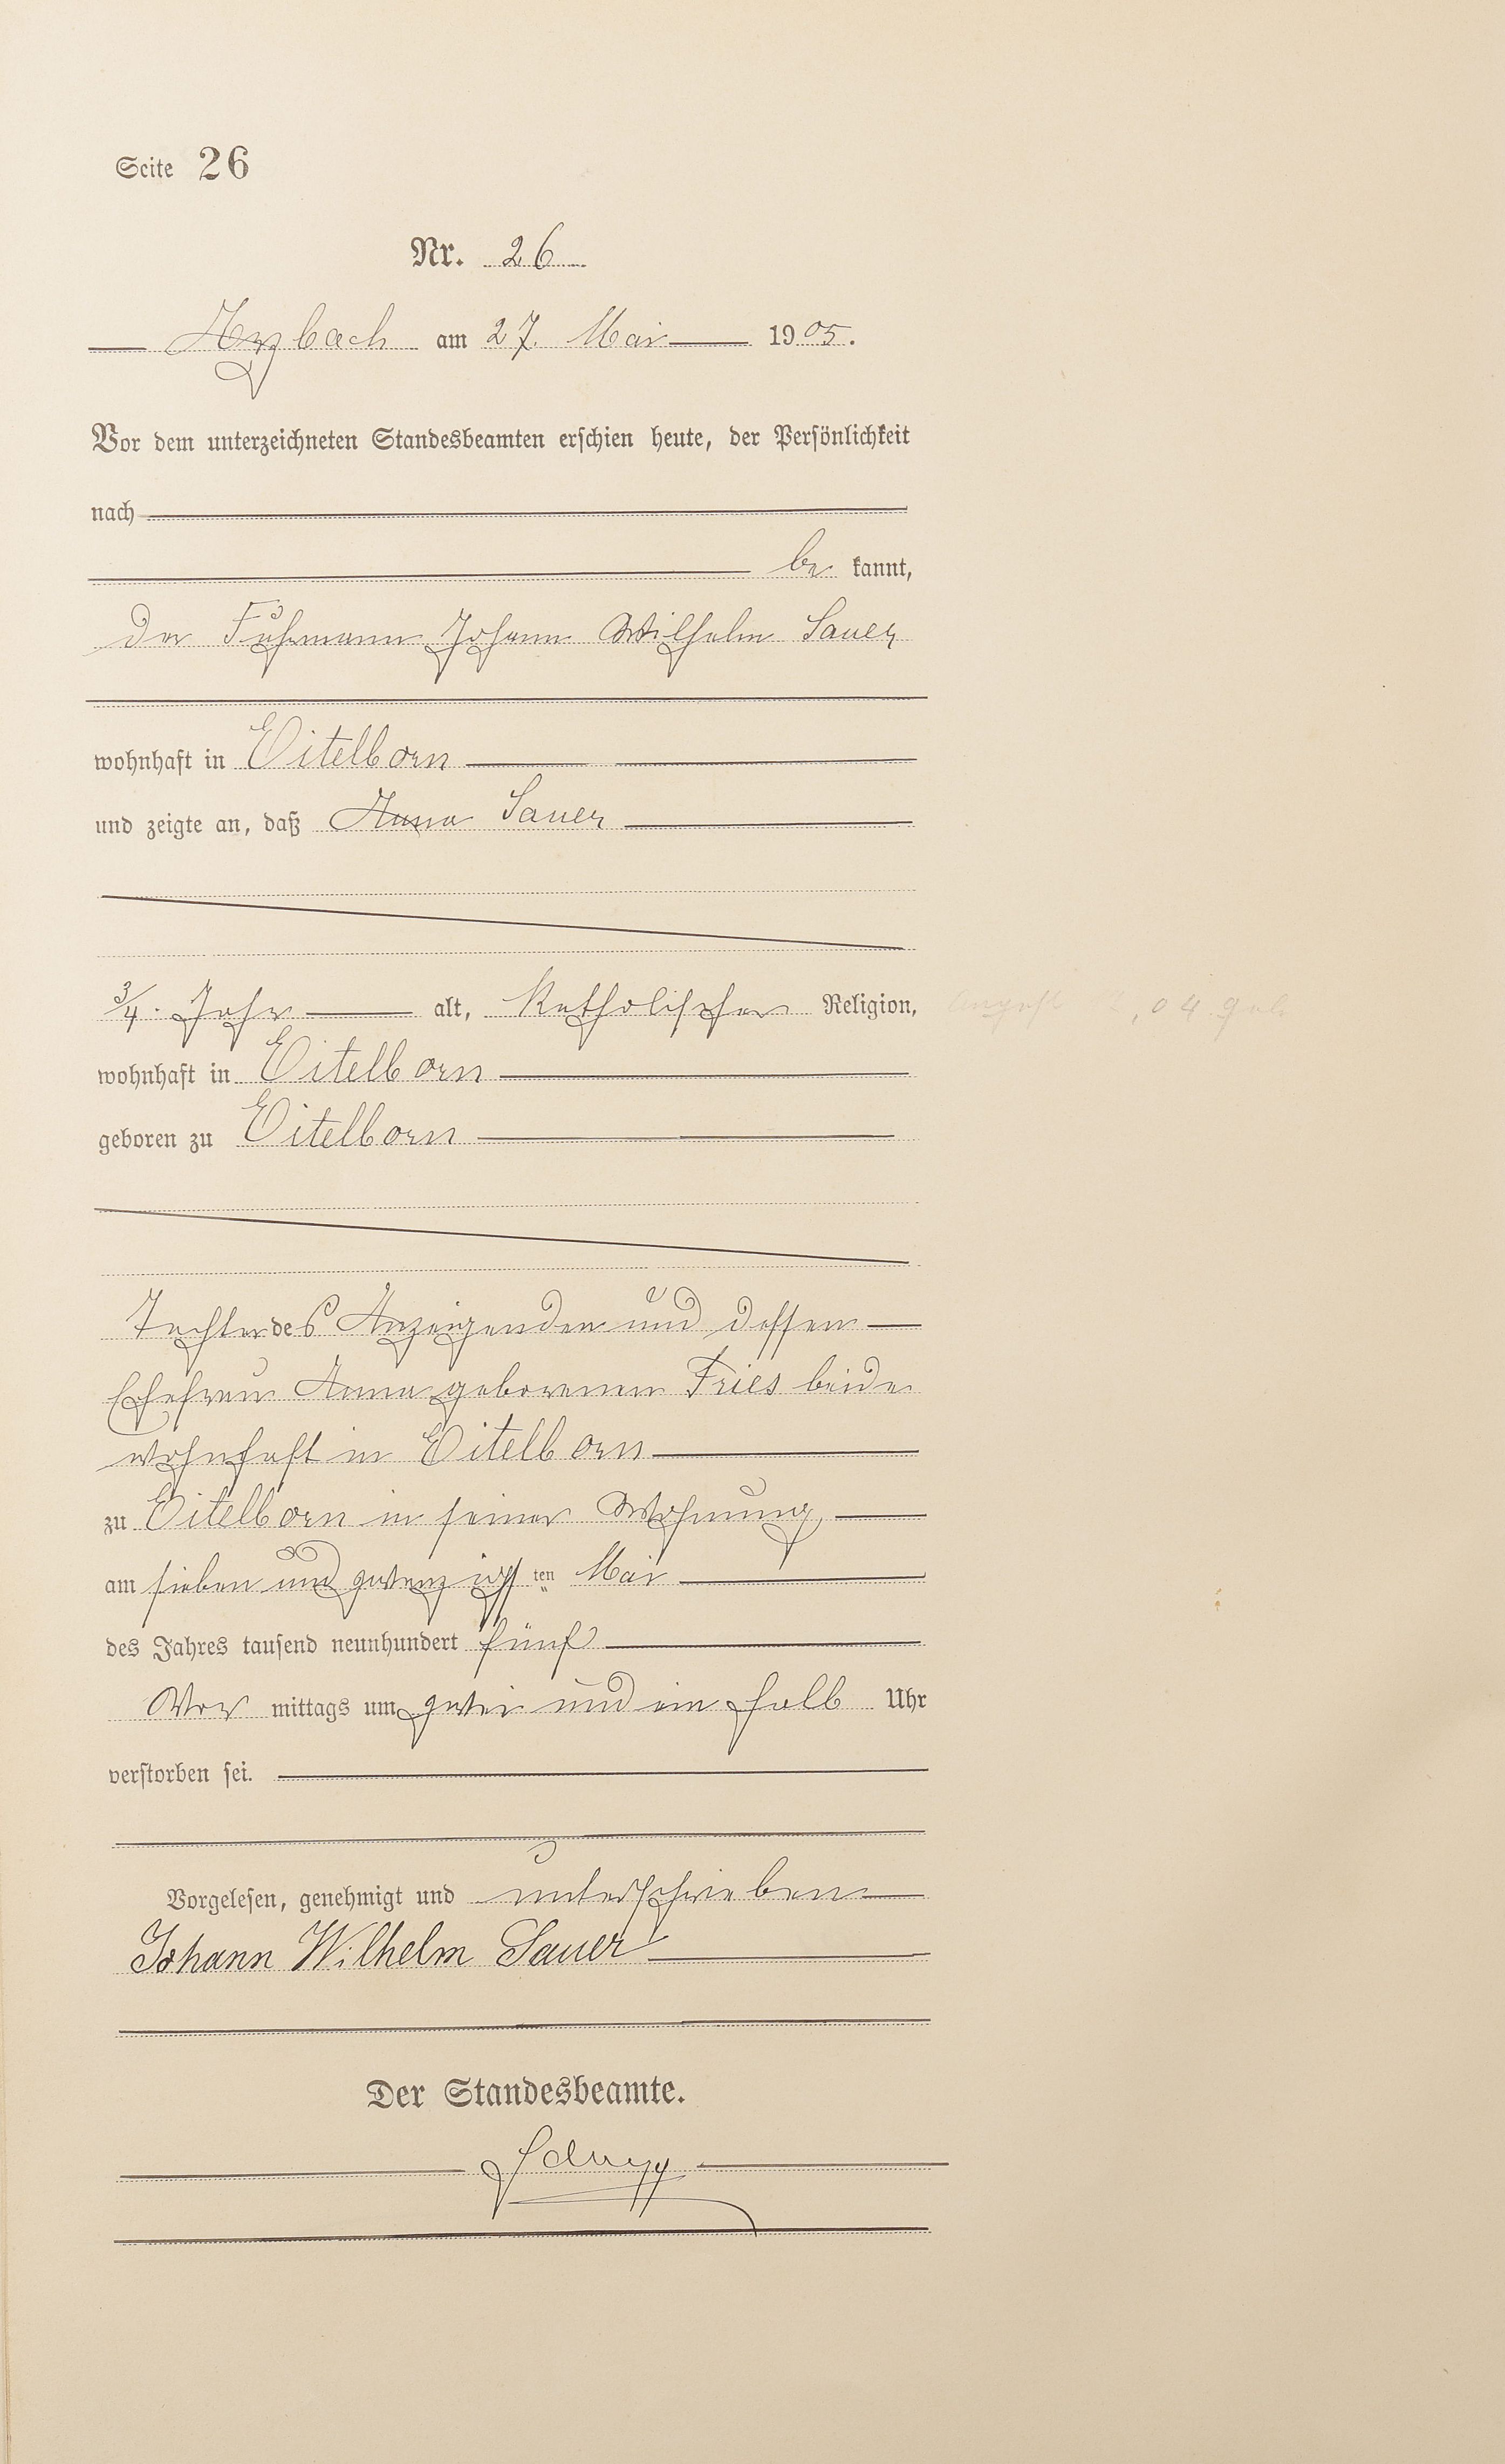 Seite 26
Nr. 26
Arzbach am 27. Mai 1905.
Vor dem unterzeichneten Standesbeamten erschien heute, der Persönlichkeit
nach
be kannt,
der Fuhrmann Johann Wilhelm Sauer
wohnhaft in Eitelborn
und zeigte an, daß Anna Sauer
3/4 Jahr alt, katholischer Religion,
wohnhaft in Eitelborn
geboren zu Eitelborn
Tochter des Anzeigenden und dessen
Ehefrau Anna geborenen Fries beide
wohnhaft in Eitelborn
zu Eitelborn in seiner Wohnung,
am sieben und zwanzigsten Mai
des Jahres tausend neunhundert fünf
Vor mittags um zwei und ein halb Uhr
verstorben sei.
Vorgelesen, genehmigt und unterschrieben
Johann Wilhelm Sauer
Der Standesbeamte.